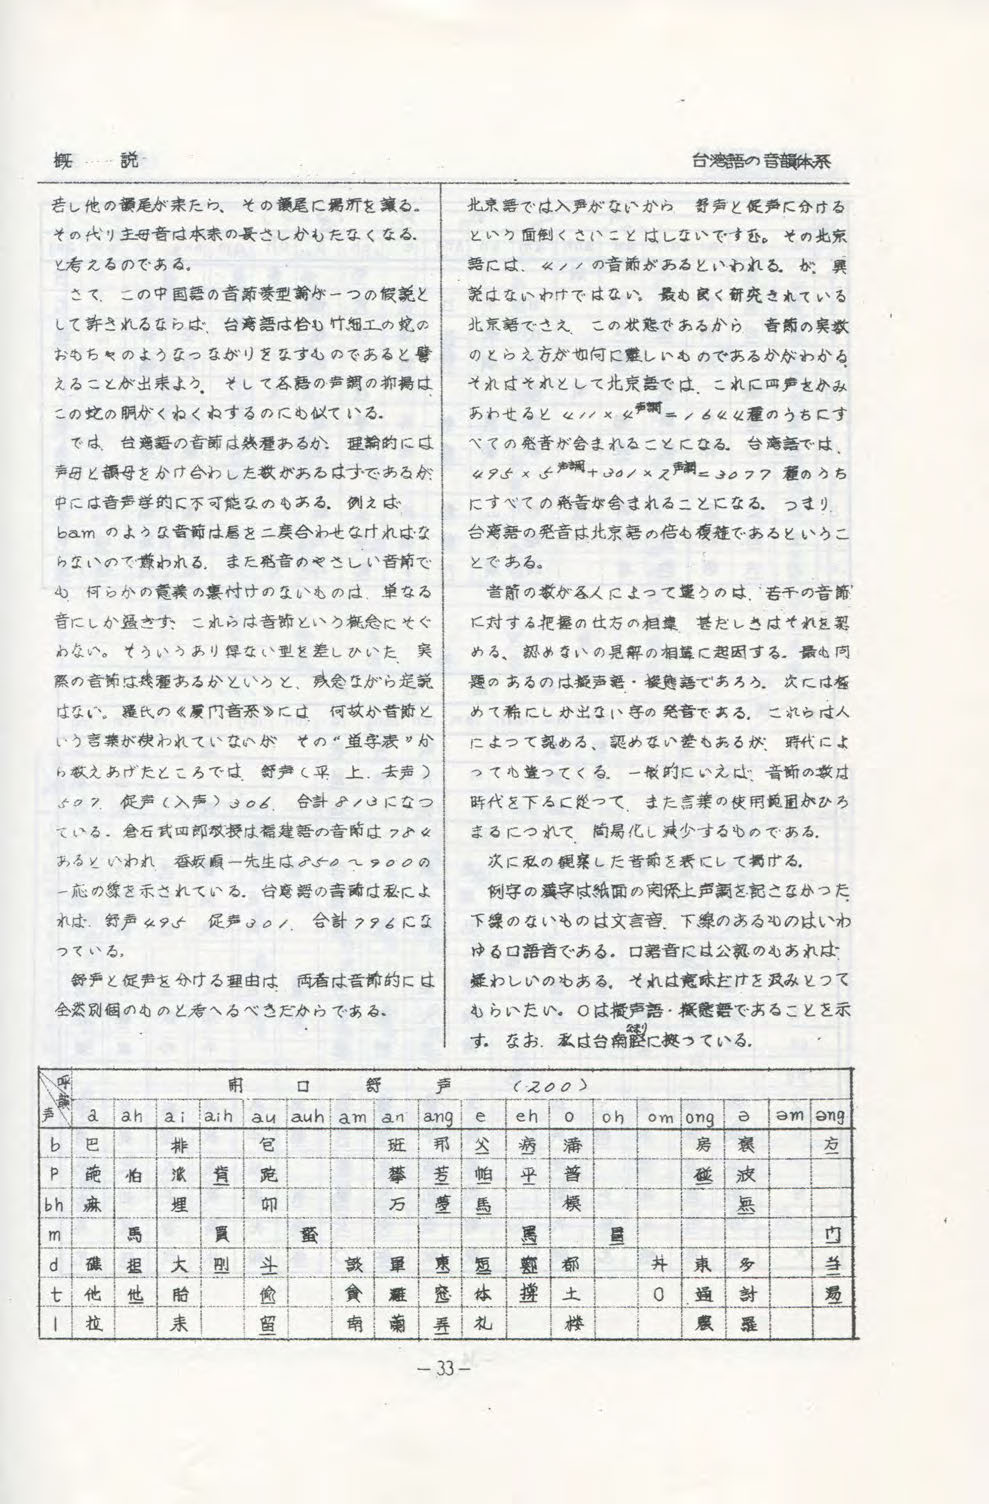 概 説
台湾語の音韻体系
若し他の韻尾が来たら、その韻尾に場所を譲る。
その代り主母音は本来の長さしかもたなくなる.
と考えるのである。
さて、この中国語の音節模型論が一つの仮説と
して許されるならば、台湾語は恰も竹細工の蛇の
おもちゃのようなつながりをなすものであると譬
えることが出来よう。そして各語の声調の抑揚は
この蛇の胴がくねくねするのにも似ている。
では、台湾語の音節は幾種あるか。理論的には
声母と韻母をかけ合わした数があるはずであるが、
中には音声学的に不可能なのもある。例えば
bam のような音節は唇を二度合わせなければな
らないので嫌われる。また発音のやさしい音節で
も、何らかの意義の裏付けのないものは、単なる
音にしか過ぎず、これらは音節という概念にそぐ
わない。そういうあり得ない型を差しひいた、実
際の音節は幾種あるかというと、残念ながら定説
はない。羅氏の《厦门音系》には、何故か音節と
いう言葉が使われていないが、その“単字表”か
ら数えあげたところでは、舒声(平.上.去声)
507、促声(入声)306、合計813になつ
ている。倉石武四郎教授は福建語の音節は784
あるといわれ、香坂順一先生は850〜900の
一応の線を示されている。台湾語の音節は私によ
れば、舒声495、促声301、合計796にな
つている。
舒声と促声を分ける理由は、両者は音節的には
全然別個のものと考へるべきだからである。
北京語では入声がないから、舒声と促声に分ける
という面倒くさいことはしないですむ。その北京
語には、411の音節があるといわれる。が、異
説はないわけではない。最も良く研究されている
北京語でさえ、この状態であるから、音節の実数
のとらえ方が如何に難しいものであるかがわかる。
それはそれとして北京語では、これに四声をかみ
あわせると 411×4声調=1644種のうちにす
べての発音が含まれることになる。台湾語では、
495×5声調+301×2声調=3077 種のうち
にすべての発音が含まれることになる。つまり、
台湾語の発音は北京語の倍も複雑であるというこ
とである。
音節の数が各人によつて違うのは、若干の音節
に対する把握の仕方の相違、甚だしきはそれを認
める、認めないの見解の相違に起因する。最も问
題のあるのは擬声語・擬態語であろう。次には極
めて稀にしか出ない字の発音である。これらは人
によつて認める、認めない差もあるが、時代によ
つても違つてくる。一般的にいえば、音節の数は
時代を下るに従つて、また言葉の使用範囲がひろ
まるにつれて、簡易化し減少するものである。
次に私の観察した音節を表にして掲げる。
例字の漢字は紙面の関係上声調を記さなかつた.
下線のないものは文言音、下線のあるものはいわ
ゆる口語音である。口語音には公認のもあれば
疑わしいのもある。それは意味だけを汲みとつて
もらいたい。〇は擬声語・擬態語であることを示
す。なお、私は台南腔に拠つている。
呼 韻 声 開 口 舒 声 (200)
a ah ai aih au auh am an ang e eh o oh om ong ə əm əng
b 巴 排 包 班 邦 父 病 浦 房 褒 方
p 葩 怕 派 背 跑 攀 芳 帕 平 普 碰 波
bh 麻 埋 卯 万 夢 馬 模 無
m 馬 買 罵 门
d 礁 担 大 斗 談 單 東 短 鄭 都 丼 東 多 当
t 他 他 胎 偷 貪 灘 窓 体 撑 土 〇 通 討 湯
l 拉 来 留 南 蘭 弄 礼 楼 農 羅
-33-